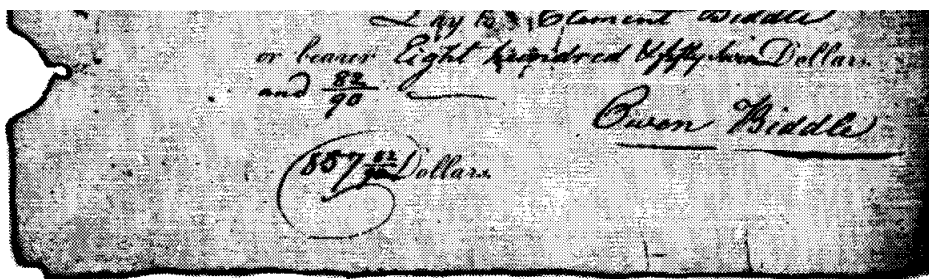 Pay to Clement Biddle
or bearer Eight hundred & fifty seven Dollars
and 82/90
Owen Biddle
857 82/90 Dollars